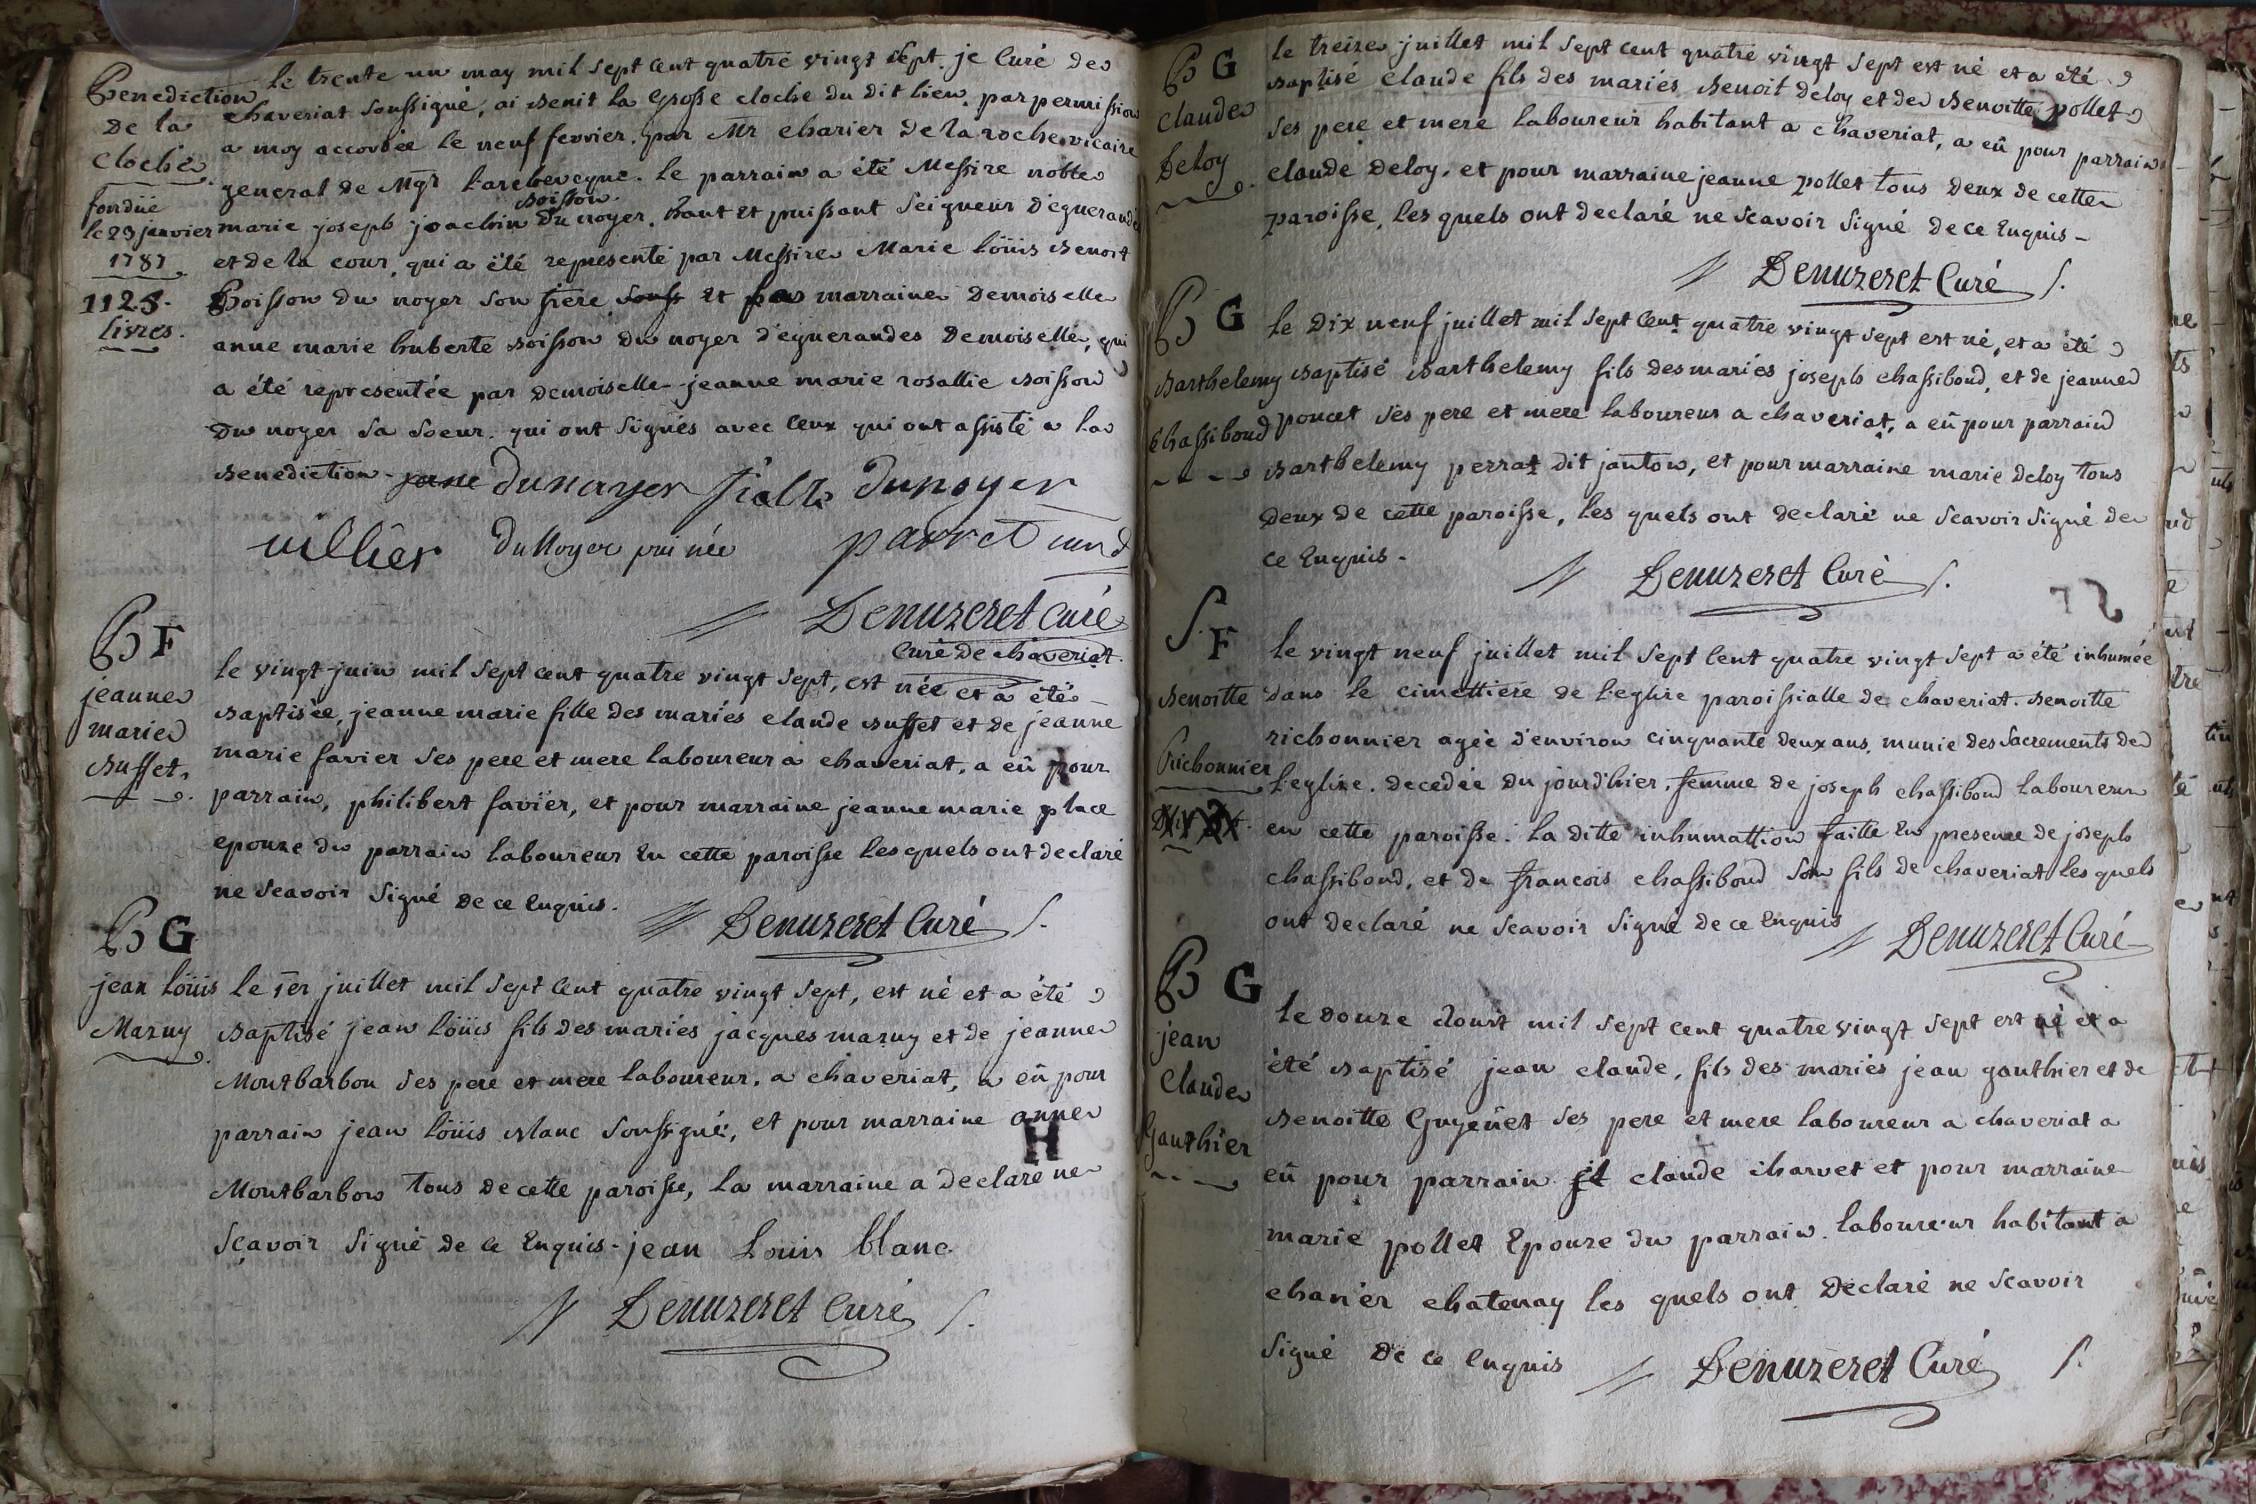 Benediction
De la
cloche
fondüe
le 23 janvier
1787
1125.
livres.
le trente un may mil sept cent quatre vingt sept. je Curé de
chaveriat soussigné, ai benit la grosse cloche du dit lieu. par permission
a moy accordée le neuf fevrier. par Mr charier de la roche vicaire
general de Mgr l'archeveque. le parrain a été Messire noble
boisson
marie joseph joachim du noyer, haut et puissant seigneur d'eguerande
et de la cour, qui a été representé par Messire Marie Loüis benoit
Boisson du noyer son frere et marraine Demoiselle
anne marie huberte boisson du noyer d'eguerandes Demoiselle, qui
a été representée par demoiselle jeanne marie rosallie boisson
du noyer sa soeur. qui ont signés avec ceux qui ont assisté a la
benediction. dunoyer fialla dunoyer
villier Dunoyer puinée parret
Denuzeret Curé
Curé de chaveriat.
B F
jeanne
marie
buffet.
le vingt juin mil sept cent quatre vingt sept, est née et a été
baptisée, jeanne marie fille des mariés claude buffet et de jeanne
marie favier ses pere et mere laboureur a chaveriat, a eû pour
parrain, philibert favier, et pour marraine jeanne marie place
epouze du parrain laboureur en cette paroisse lesquels ont declaré
ne scavoir signé de ce enquis.
Denuzeret Curé
B G
jean loüis
Mazuy
le 1er juillet mil sept cent quatre vingt sept, est né et a été
baptisé jean loüis fils des mariés jacques mazuy et de jeanne
Montbarbon ses pere et mere laboureur. a chaveriat, a eû pour
parrain jean loüis blanc soussigné, et pour marraine anne
H
Montbarbon tous de cette paroisse, la marraine a declaré ne
sçavoir signé de ce enquis. jean Louis blanc
Denuzeret Curé
B G
claude
Deloy
le treize juillet mil sept cent quatre vingt sept est né et a été
baptisé claude fils des mariés benoit deloy et de benoitte pollet
ses pere et mere laboureur habitant a chaveriat, a eû pour parrain
claude Deloy. et pour marraine jeanne pollet tous deux de cette
paroisse, les quels ont declaré ne scavoir signé de ce enquis.
Denuzeret Curé
B G
barthelemy
chassiboud
le dix neuf juillet mil sept cent quatre vingt sept est né, et a été
baptisé barthelemy fils des mariés joseph chassiboud, et de jeanne
poncet ses pere et mere laboureur a chaveriat, a eû pour parrain
barthelemy perrat dit janton, et pour marraine marie deloy tous
deux de cette paroisse, les quels ont declaré ne scavoir signé de
ce enquis.
Denuzeret Curé
S. F
benoitte
Richonnier
le vingt neuf juillet mil sept cent quatre vingt sept a été inhumée
dans le cimettiere de l'eglize paroissialle de chaveriat. benoitte
richonnier agée d'environ cinquante deux ans, munie des sacrements de
l'eglize. decedée du jourdhier, femme de joseph chassiboud laboureur
en cette paroisse. la ditte inhumattion faitte en presence de joseph
chassiboud, et de francois chassiboud son fils de chaveriat les quels
ont declaré ne scavoir signé de ce enquis
Denuzeret Curé
B G
jean
Claude
Gauthier
le douze aoust mil sept cent quatre vingt sept est né et a
été baptisé jean claude, fils des mariés jean gauthier et de
benoitte Guyenet ses pere et mere laboureur a chaveriat a
eû pour parrain claude charvet et pour marraine
marie pollet Epouze du parrain. laboureur habitant a
chanier chatenay les quels ont declaré ne scavoir
signé de ce enquis
Denuzeret Curé